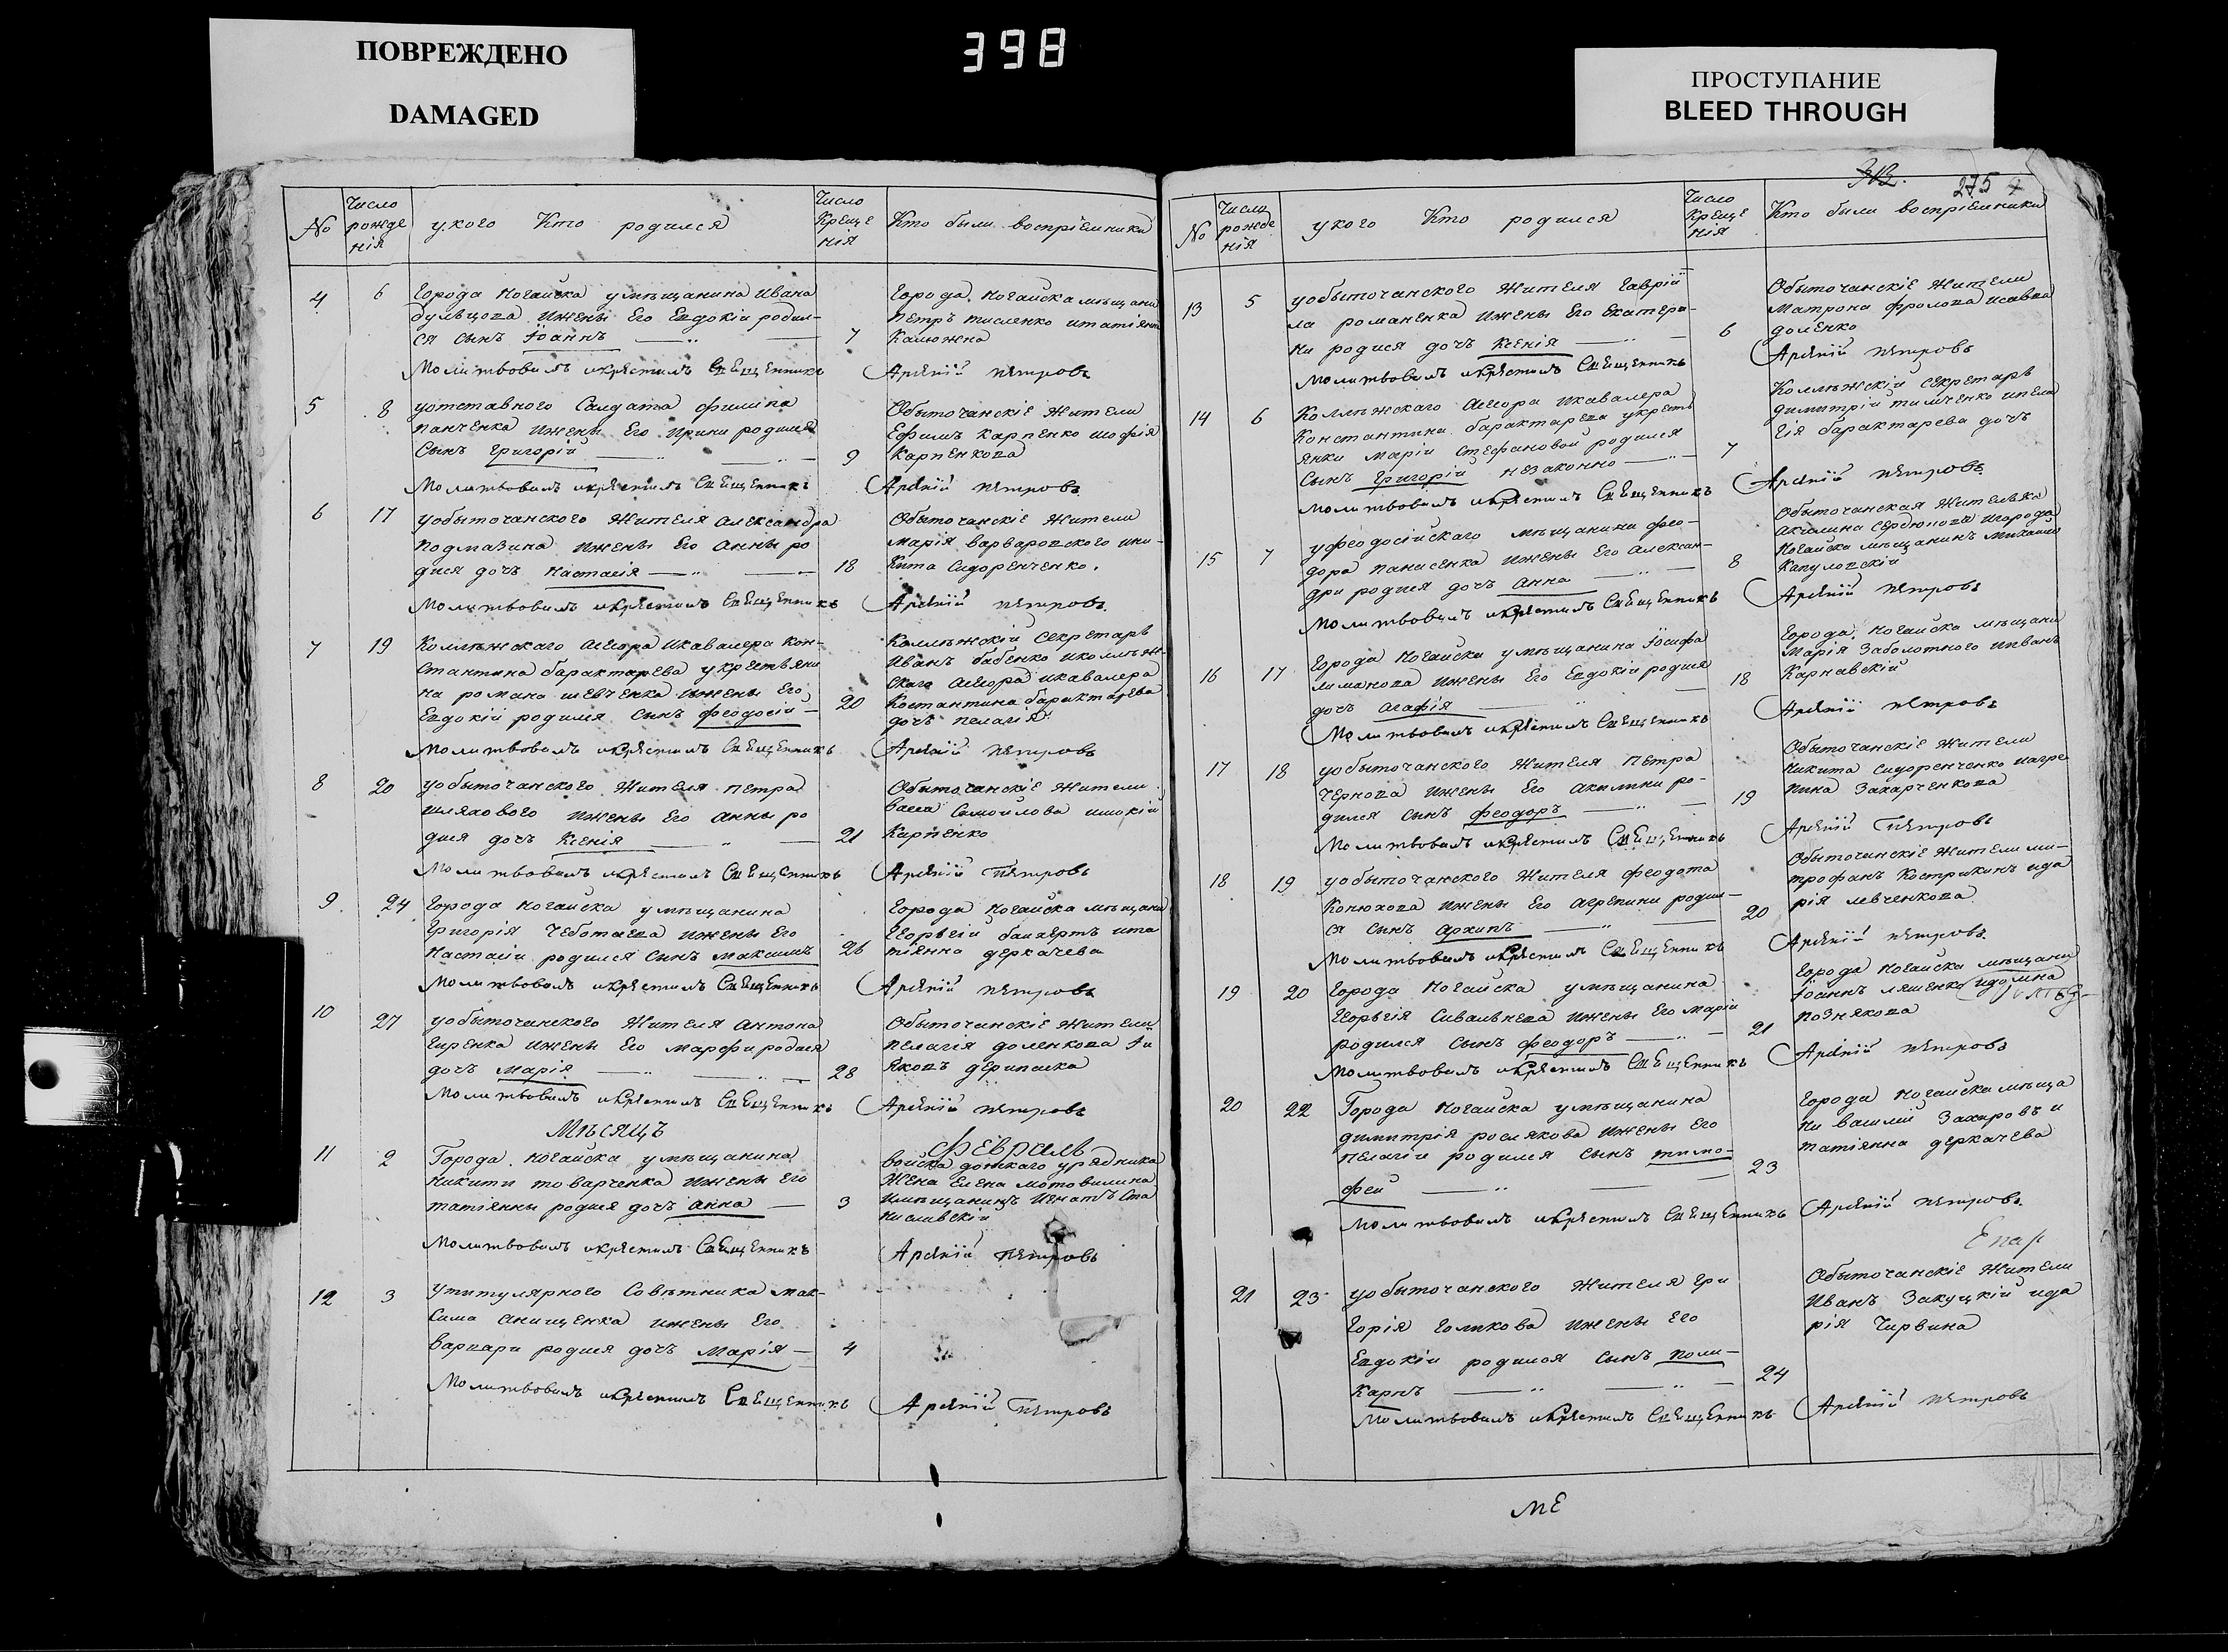 ПОВРЕЖДЕНО
DAMAGED
398
ПРОСТУПАНИЕ
BLEED THROUGH
№
Число рожде нія
у кого Кто родился
Число Креще нія
Кто были воспріемники
4 6
Города Ногайска умѣщанина Ивана
ижены Его Евдокіи родил-
ся сынъ Іоаннъ
7
Города Ногайска мѣщани
Петръ
Молитвовалъ икрестилъ Священникъ Арсеній Петровъ
5 8
уотставного Салдата филипа
панченка ижены Его Ирини родился
Сынъ Григорій
9
Обыточанскіе жители
Ефимъ карпенко исофія
Карпенкова
Молитвовалъ икрестилъ Священникъ Арсеній Петровъ
6 17
уобыточанского жителя александра
подмазина ижены Его анны ро
дися дочъ настасія
18
Обыточанскіе жители
марія варваровского ини-
кита Сидоренченко.
Молитвовалъ икрестилъ Священникъ Арсеній Петровъ
7 19
Коллѣжскаго асесора икавалера кон-
стантина барактарева укрестьяни
на романа шевченка ижены Его
Евдокіи родился сынъ феодосій
20
Коллѣжскій Секретарь
Иванъ бабенко иколлѣж-
скаго асесора икавалера
Костантина барактарева
дочъ пелагія
Молитвовалъ икрестилъ Священникъ Арсеній Петровъ
8 20
уобыточанского жителя петра
шляхового ижены Его анны ро
дися дочъ Ксенія
21
Обыточанскіе жители
Самойлова
Карпенко
Молитвовалъ икрестилъ Священникъ Арсеній Петровъ
9 24
Города ногайска умѣщанина
Григорія Чеботаева ижены Его
настасіи родился сынъ максимъ
26
Города ногайска мѣщани
Георгій ита
тіянна деркачева
Молитвовалъ икрестилъ Священникъ Арсеній Петровъ
10 27
уобыточанского жителя антона
Гиренка ижены Его марфи родися
дочъ марія
28
Обыточанскіе жители
пелагія доленкова и
яковъ дерипаска
Молитвовалъ икрестилъ Священникъ Арсеній Петровъ
Мѣсяцъ февраль
11 2
Города ногайска умѣщанина
никити товарченка ижены Его
татіянны родися дочъ анна
3
войска донскаго урядника
жена Елена мотовилина
имѣщанинъ Игнатъ Ста
ниславскій
Молитвовалъ икрестилъ Священникъ Арсеній Петровъ
12 3
утитулярного Совѣтника мак-
сима онищенка ижены Его
варвари родися дочъ марія
4
Молитвовалъ икрестилъ Священникъ Арсеній Петровъ
275
№
Число рожде нія
у кого Кто родился
Число Креще нія
Кто были воспріемники
13 5
уобыточанского жителя гаврій
ла романенка ижены Его Екатери-
ни родися дочъ Ксенія
6
Обыточанскіе жители
Матрона фролова исавва
доленко
Молитвовалъ икрестилъ Священникъ Арсеній Петровъ
14 6
Коллѣжскаго асесора икавалера
Константина барактарева укресть
янки маріи Стефановой родился
Сынъ Григорій незаконно
7
Коллѣжскій Секретарь
димытрій тимченко ипела
гія барактарева дочъ
Молитвовалъ икрестилъ Священникъ Арсеній Петровъ
15 7
уфеодосійскаго мѣщанина фео-
дора панисенка ижены Его алексан-
дри родися дочъ анна
8
Обыточанская жителька
акилина Сердюкова игорода
Ногайска мѣщанинъ михайло
Капуловскій
Молитвовалъ икрестилъ Священникъ Арсеній Петровъ
16 17
Города Ногайска умѣщанина Іосифа
лиманова ижены Его Евдокіи родися
дочъ агафія
18
Города Ногайска мѣщани
марія Заболотного ииванъ
Карнавскій
Молитвовалъ икрестилъ Священникъ Арсеній Петровъ
17 18
уобыточанского жителя Петра
Чернова ижены Его акилини ро-
дился сынъ феодоръ
19
Обыточанскіе жители
никита Сидоренченко иагре
пина Захарченкова
Молитвовалъ икрестилъ Священникъ Арсеній Петровъ
18 19
уобыточанского жителя феодота
Конюхова ижены Его агрепини родил-
ся сынъ архипъ
20
Обыточанскіе жители ми-
трофанъ Кострикинъ ида
рія левченкова
Молитвовалъ икрестилъ Священникъ Арсеній Петровъ
19 20
Города Ногайска умѣщанина
Георгія Сивальнева ижены Его маріи
родился сынъ феодоръ
21
Города Ногайска мѣщани
Іоаннъ ляшенко идомна
познякова
Молитвовалъ икрестилъ Священникъ Арсеній Петровъ
20 22
Города Ногайска умѣщанина
димитрія рослякова ижены Его
пелагіи родился сынъ тимо-
фей
23
Города Ногайска мѣща
ни василій Захаровъ и
татіянна деркачева
Молитвовалъ икрестилъ Священникъ Арсеній Петровъ
21 23
уобыточанского жителя гри
горія Голикова ижены Его
Евдокіи родился сынъ поли-
карпъ
24
Обыточанскіе жители
Иванъ Закуцкій ида
рія Чирвина
Молитвовалъ икрестилъ Священникъ Арсеній Петровъ